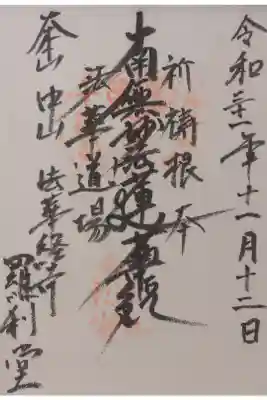 令和年十一月十二日
祈祷根本
南無妙法蓮華経
法華道場
中山法華経寺
羅刹堂